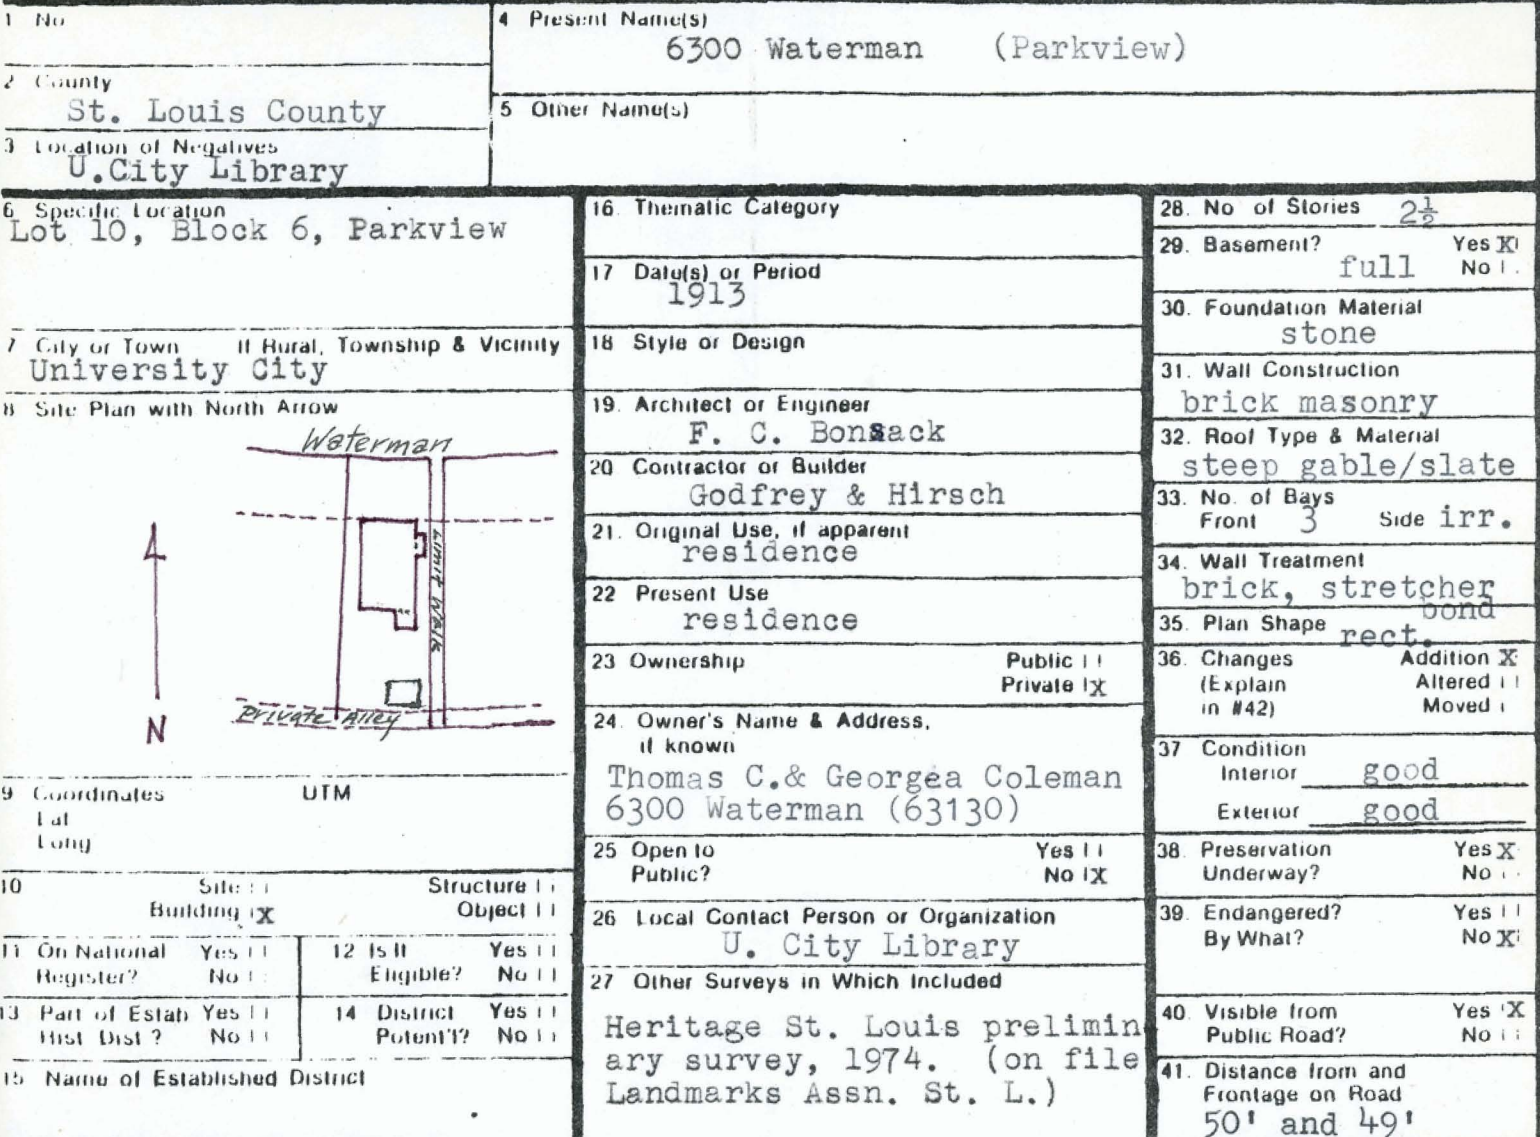 1 No
4 Present Name(s)
6300 Waterman (Parkview)
2 County
St. Louis County
5 Other Name(s)
3 Location of Negatives
U.City Library
6 Specific Location
Lot 10, Block 6, Parkview
7 City or Town If Rural, Township & Vicinity
University City
8 Site Plan with North Arrow
Waterman
Limit Walk
Private Alley
N
9 Coordinates UTM
Lat
Long
10 Site
Structure
Building X
Object
11 On National Register? Yes No
12 Is It Eligible? Yes No
13 Part of Estab Hist Dist? Yes No
14 District Potent'l? Yes No
15 Name of Established District
16. Thematic Category
17 Date(s) or Period
1913
18 Style or Design
19. Architect or Engineer
F. C. Bonsack
20 Contractor or Builder
Godfrey & Hirsch
21. Original Use, if apparent
residence
22 Present Use
residence
23 Ownership Public
Private X
24. Owner's Name & Address,
if known
Thomas C.& Georgea Coleman
6300 Waterman (63130)
25 Open to Yes
Public? No X
26 Local Contact Person or Organization
U. City Library
27 Other Surveys in Which Included
Heritage St. Louis prelimin
ary survey, 1974. (on file
Landmarks Assn. St. L.)
28. No of Stories 2½
29. Basement? Yes X
full No
30. Foundation Material
stone
31. Wall Construction
brick masonry
32. Roof Type & Material
steep gable/slate
33. No. of Bays
Front 3 Side irr.
34. Wall Treatment
brick, stretcher
bond
35. Plan Shape rect.
36. Changes Addition X
(Explain Altered
in #42) Moved
37 Condition
Interior good
Exterior good
38. Preservation Yes X
Underway? No
39. Endangered? Yes
By What? No X
40. Visible from Yes X
Public Road? No
41. Distance from and
Frontage on Road
50' and 49'